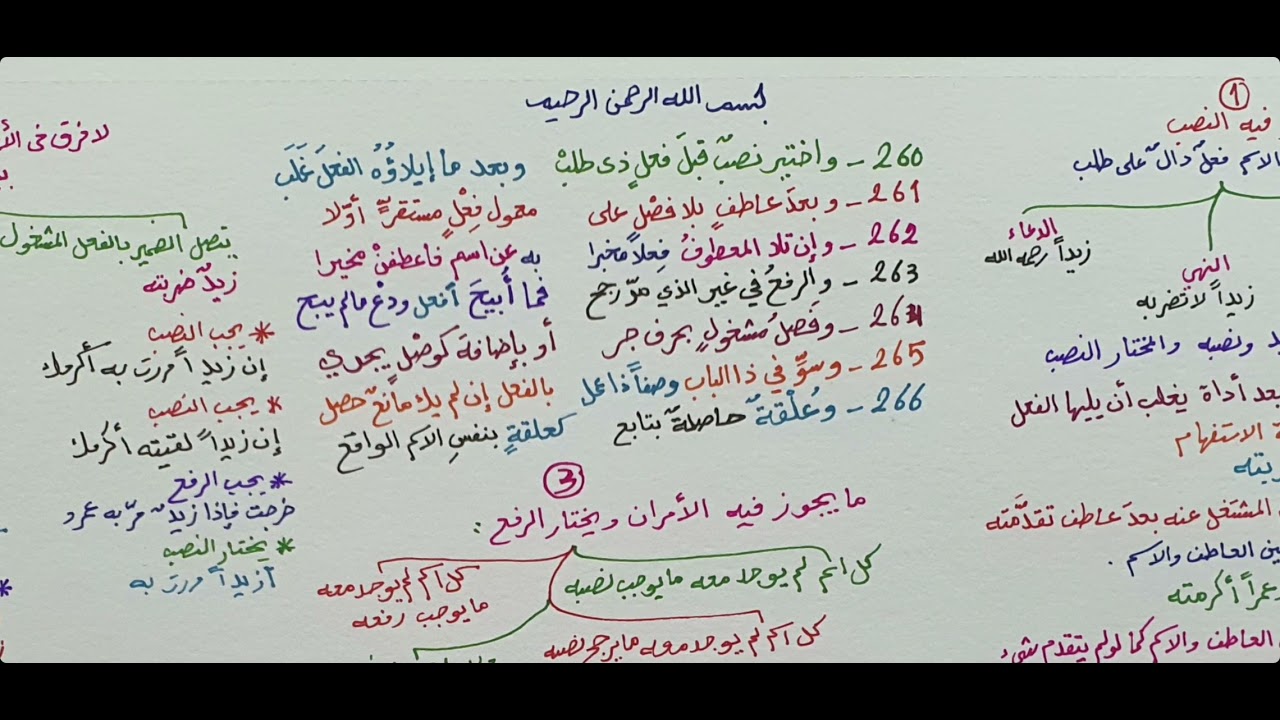 بسم الله الرحمن الرحيم
260 - واختير نصبٌ قبلَ فعلٍ ذى طلبْ وبعد ما إيلاؤُهُ الفعلَ غَلَب
261 - وبعدَ عاطفٍ بلا فصْلٍ على معمول فِعْلٍ مستقرٍّ أوّلا
262 - وإن تلا المعطوفُ فِعلاً مخبرا به عن اسم فاعطفنْ مخيرا
263 - والرفعُ في غير الذي مرّ رجح فما أُبيحَ أفعل ودَعْ مالم يبح
264 - وفصلُ مشغولٍ بحرف جر أو بإضافة كوصْل يجري
265 - وسوِّ في ذا الباب وصفاً ذا عمل بالفعل إن لم يك مانعٌ حصل
266 - وعُلْقةٌ حاصلةٌ بتابع كعلقةٍ بنفسِ الاسم الواقع
3
ما يجوز فيه الأمران ويختار الرفع :
كل اسم لم يوجد معه ما يوجب نصبه
كل اسم لم يوجد معه
ما يوجب رفعه
كل اسم لم يوجد معه ما يرجح نصبه
1
فيه النصب
الاسم فعلٌ دالٌ على طلب
الدعاء
زيداً رحمه الله
النهي
زيداً لا تضربه
ونصبه والمختار النصب
بعد أداة يغلب أن يليها الفعل
الاستفهام
المشتغل عنه بعدَ عاطف تقدَّمته
بين العاطف والاسم .
عمراً أكرمته
العاطف والاسم كما لو لم يتقدم شيء
لا فرق فى
يتصل الضمير بالفعل المشغول
زيدٌ ضربته
* يجب النصب
إن زيداً مررت به أكرمك
* يجب النصب
إن زيداً لقيته أكرمك
* يجب الرفع
خرجت فإذا زيدٌ مرّ به عمرو
* يختار النصب
أزيداً مررت به